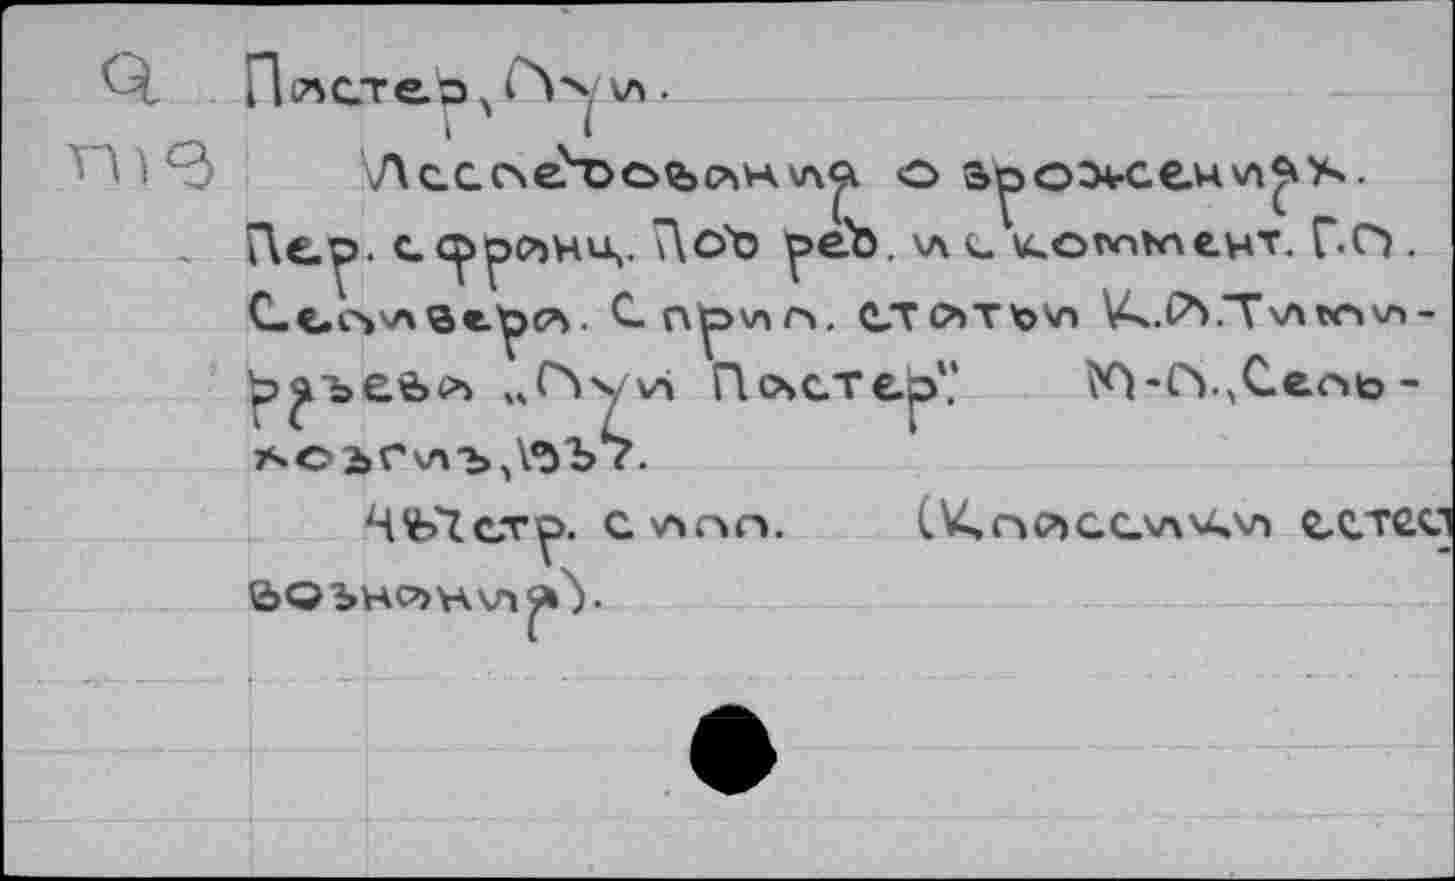 Q Пастер, Луи.
П19 Исследования о брожениях.
Пер. с франц. Под ред. и с коммент. Г.Л.
Селибера. С прил. статьи К.А.Тими-
рязева „Луи Пастер". М-Л., Сель-
хозгиз, 1937.
487 стр. с илл. (Классики естест
вознания).